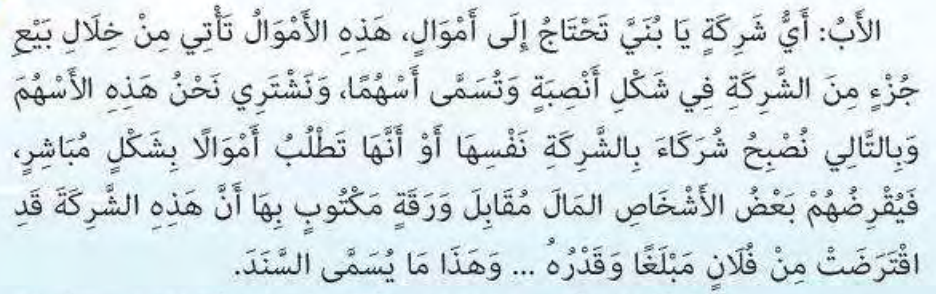 الأَبُ: أَيُّ شَرِكَةٍ يَا بُنَيَّ تَحْتَاجُ إِلَى أَمْوَالٍ، هَذِهِ الأَمْوَالُ تَأْتِي مِنْ خِلَالِ بَيْعِ
جُزْءٍ مِنَ الشَّرِكَةِ فِي شَكْلِ أَنْصِبَةٍ وَتُسَمَّى أَسْهُمًا، وَنَشْتَرِي نَحْنُ هَذِهِ الأَسْهُمَ
وَبِالتَّالِي نُصْبِحُ شُرَكَاءَ بِالشَّرِكَةِ نَفْسِهَا أَوْ أَنَّهَا تَطْلُبُ أَمْوَالًا بِشَكْلٍ مُبَاشِرٍ،
فَيُقْرِضُهُمْ بَعْضُ الأَشْخَاصِ المَالَ مُقَابِلَ وَرَقَةٍ مَكْتُوبٍ بِهَا أَنَّ هَذِهِ الشَّرِكَةَ قَدِ
اقْتَرَضَتْ مِنْ فُلَانٍ مَبْلَغًا وَقَدْرُهُ ... وَهَذَا مَا يُسَمَّى السَّنَدَ.